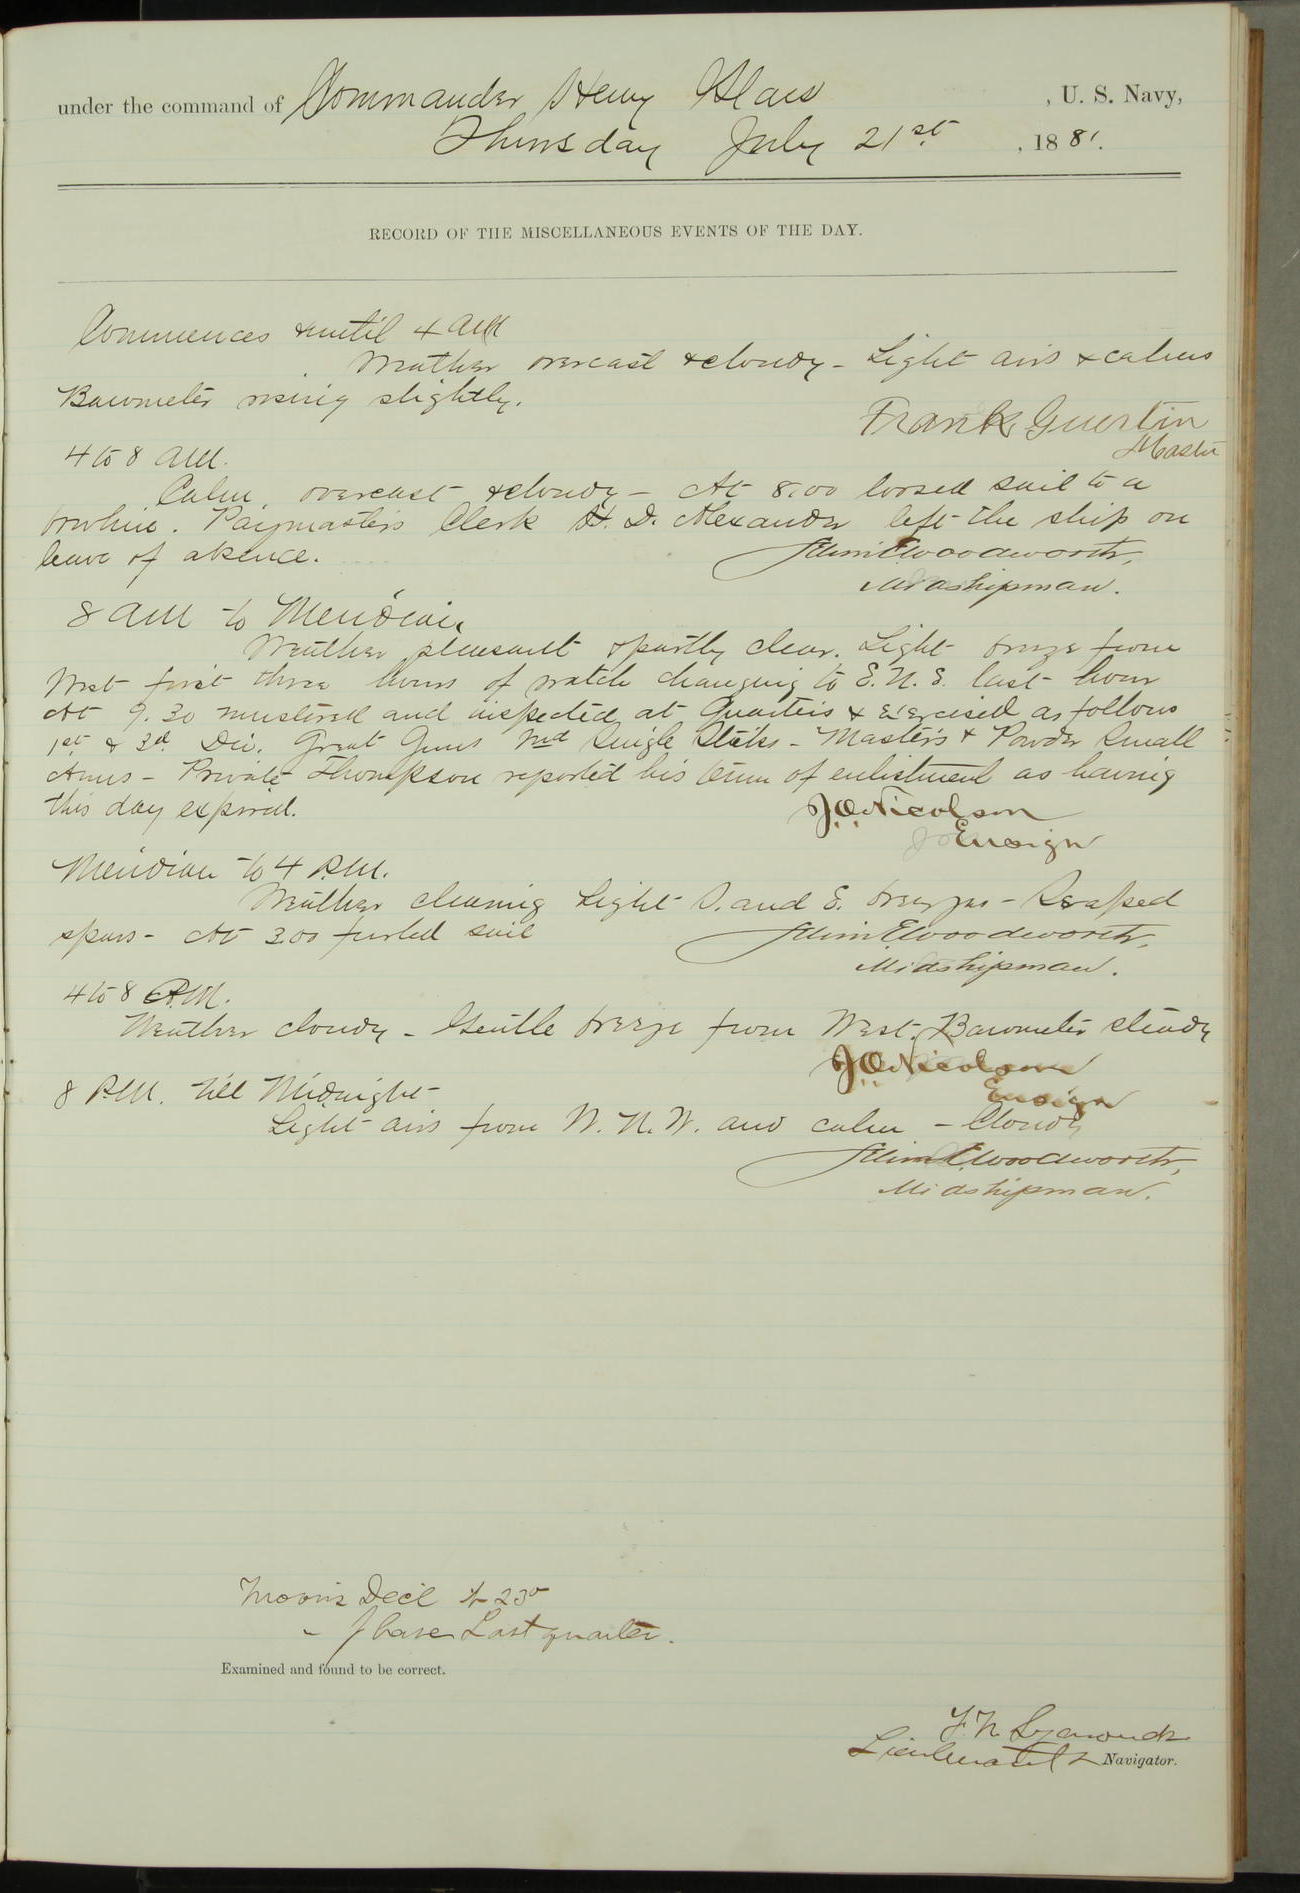 under the command of Commander Henry Glass, U. S. Navy,
Thursday July 21st, 1881.
RECORD OF THE MISCELLANEOUS EVENTS OF THE DAY.
Commences & until 4 AM
Weather overcast & cloudy - Light airs & calms
Barometer rising slightly.
Frank Guertin
Master
4 to 8 AM.
Calm, overcast & cloudy - At 8.00 loosed sail to a
bowline. Paymaster's Clerk H. D. Alexander left the ship on
leave of absence.
Selim E. Woodworth,
Midshipman.
8 AM to Meridian
Weather pleasant & partly clear. Light breeze from
West first three hours of watch changing to E.N.E. last hour
At 9.30 mustered and inspected at Quarters & exercised as follows
1st & 3d Div. Great Guns 2nd Single Sticks - Masters & Powder Small
Arms - Private Thompson reported his term of enlistment as having
this day expired.
J O Nicolson
Ensign
Meridian to 4 P.M.
Weather clearing Light S. and E. breezes - Scraped
spars - At 3.00 furled sail
Selim E Woodworth,
Midshipman.
4 to 8 P.M.
Weather cloudy - Gentle breeze from West. Barometer steady
J O Nicolson
Ensign
8 P.M. till Midnight
Light airs from W. N. W. and calm - Cloudy
Selim E. Woodworth,
Midshipman.
Moon's Decl + 23°
" Phase Last quarter.
Examined and found to be correct.
F. M. Symonds
Lieutenant & Navigator.